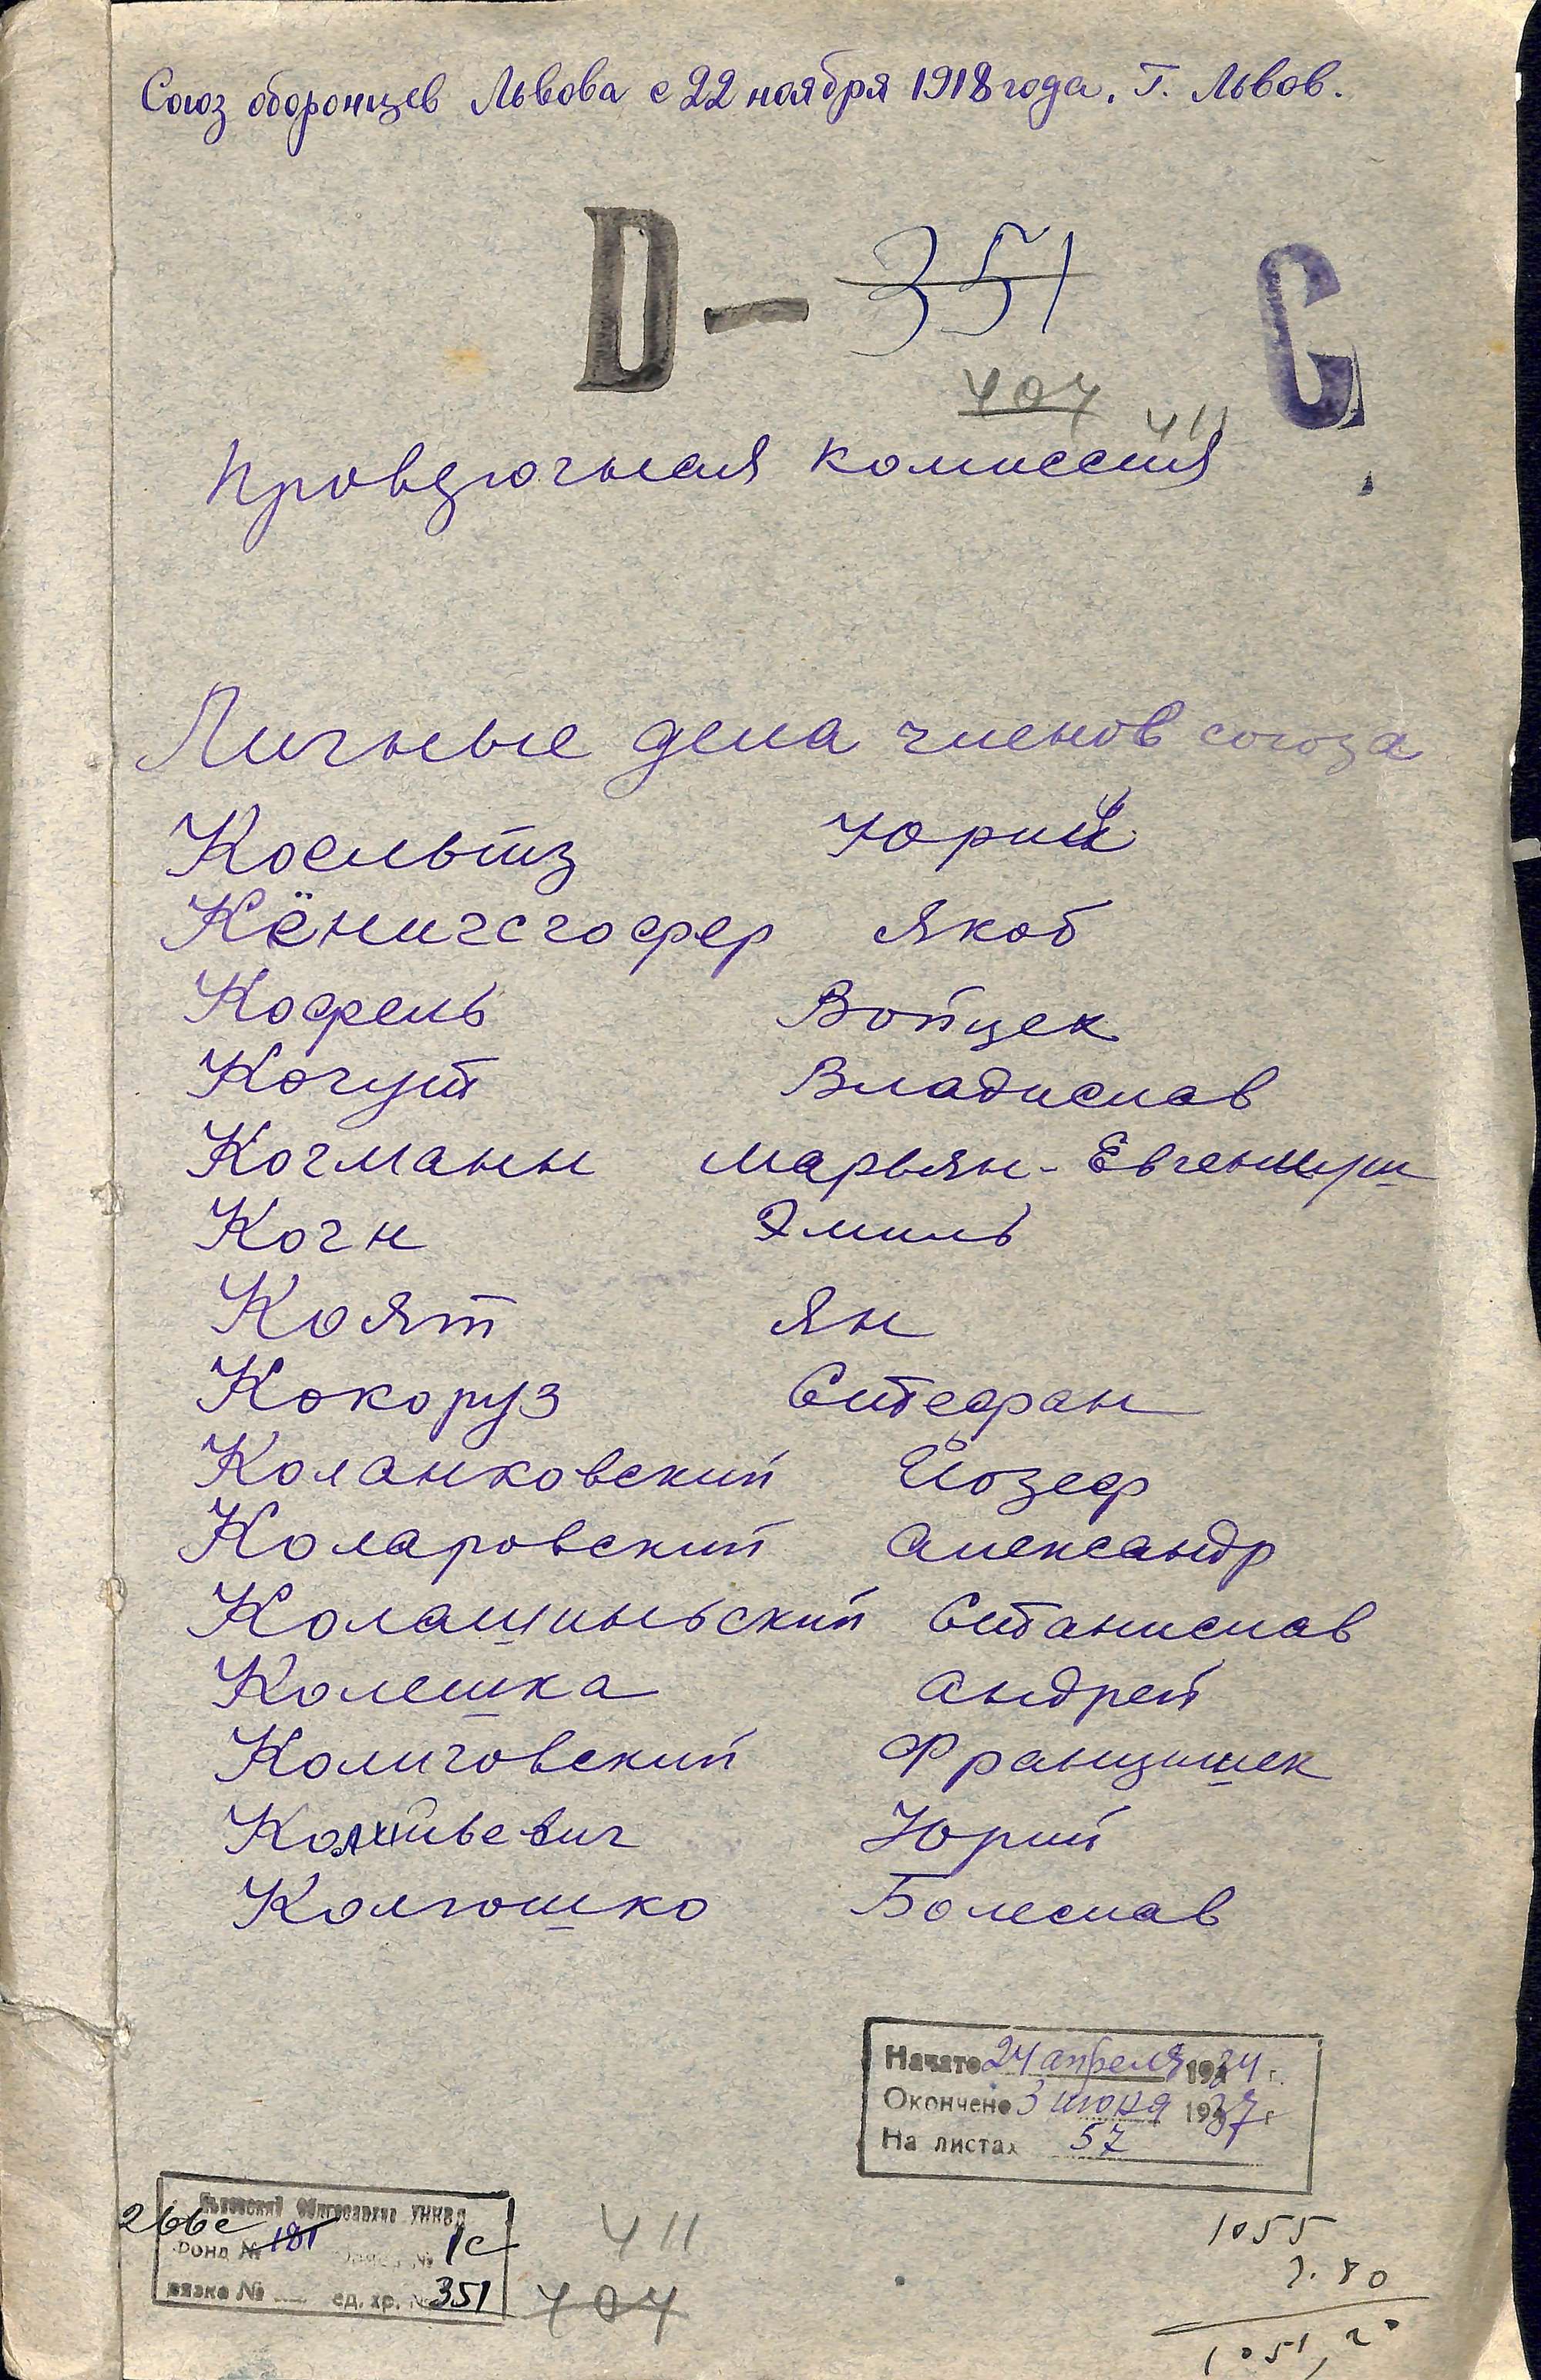 Союз оборонцев Львова с 22 ноября 1918 года. Г. Львов.
D — 351 G
407 411
Проверочная комиссия
Личные дела членов союза
Коельтз Юрий
Кёнигсгофер Якоб
Кофель Войцек
Когут Владислав
Когманн Марьян-Евгениуш
Когн Эмиль
Коят Ян
Кокоруз Стефан
Коланковский Йозеф
Коларовский Александр
Колашиньский Станислав
Колешка Андрей
Колиговский Францишек
Юрий
Колюшко Болеслав
Начато 24 апреля 1934 г.
Окончено 3 июня 1937 г
На листах 57
Львовский Облгосархив УНКВД
266с
Фонд № 181 опись № 1с
вязка № ед. хр. № 351
411
407
1055
3.80
1051,20